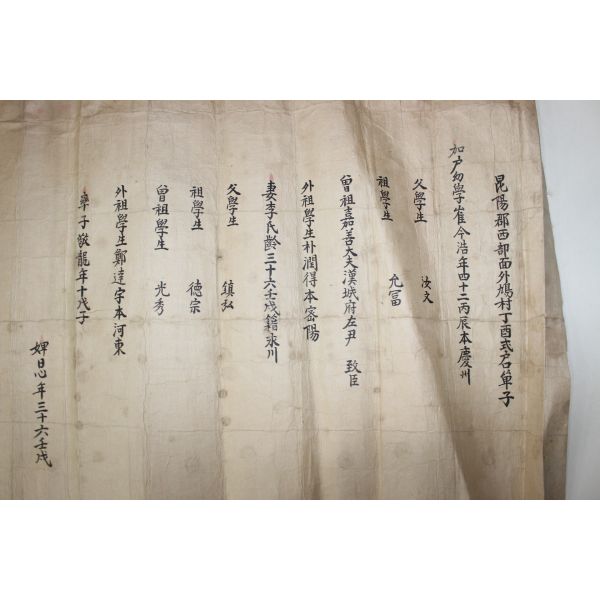 昆陽郡西部面外鳩村丁酉式戶單子
加戶幼學崔今浩年四十二丙辰本慶州
父學生 汝文
祖學生 允冨
曾祖嘉善大夫漢城府左尹 致臣
外祖學生朴潤得本密陽
妻李氏齡三十六壬戌籍永川
父學生 鎮弘
祖學生 德宗
曾祖學生 光秀
外祖學生鄭達宇本河東
率子敬龍年十戊子
婢日心年三十六壬戌